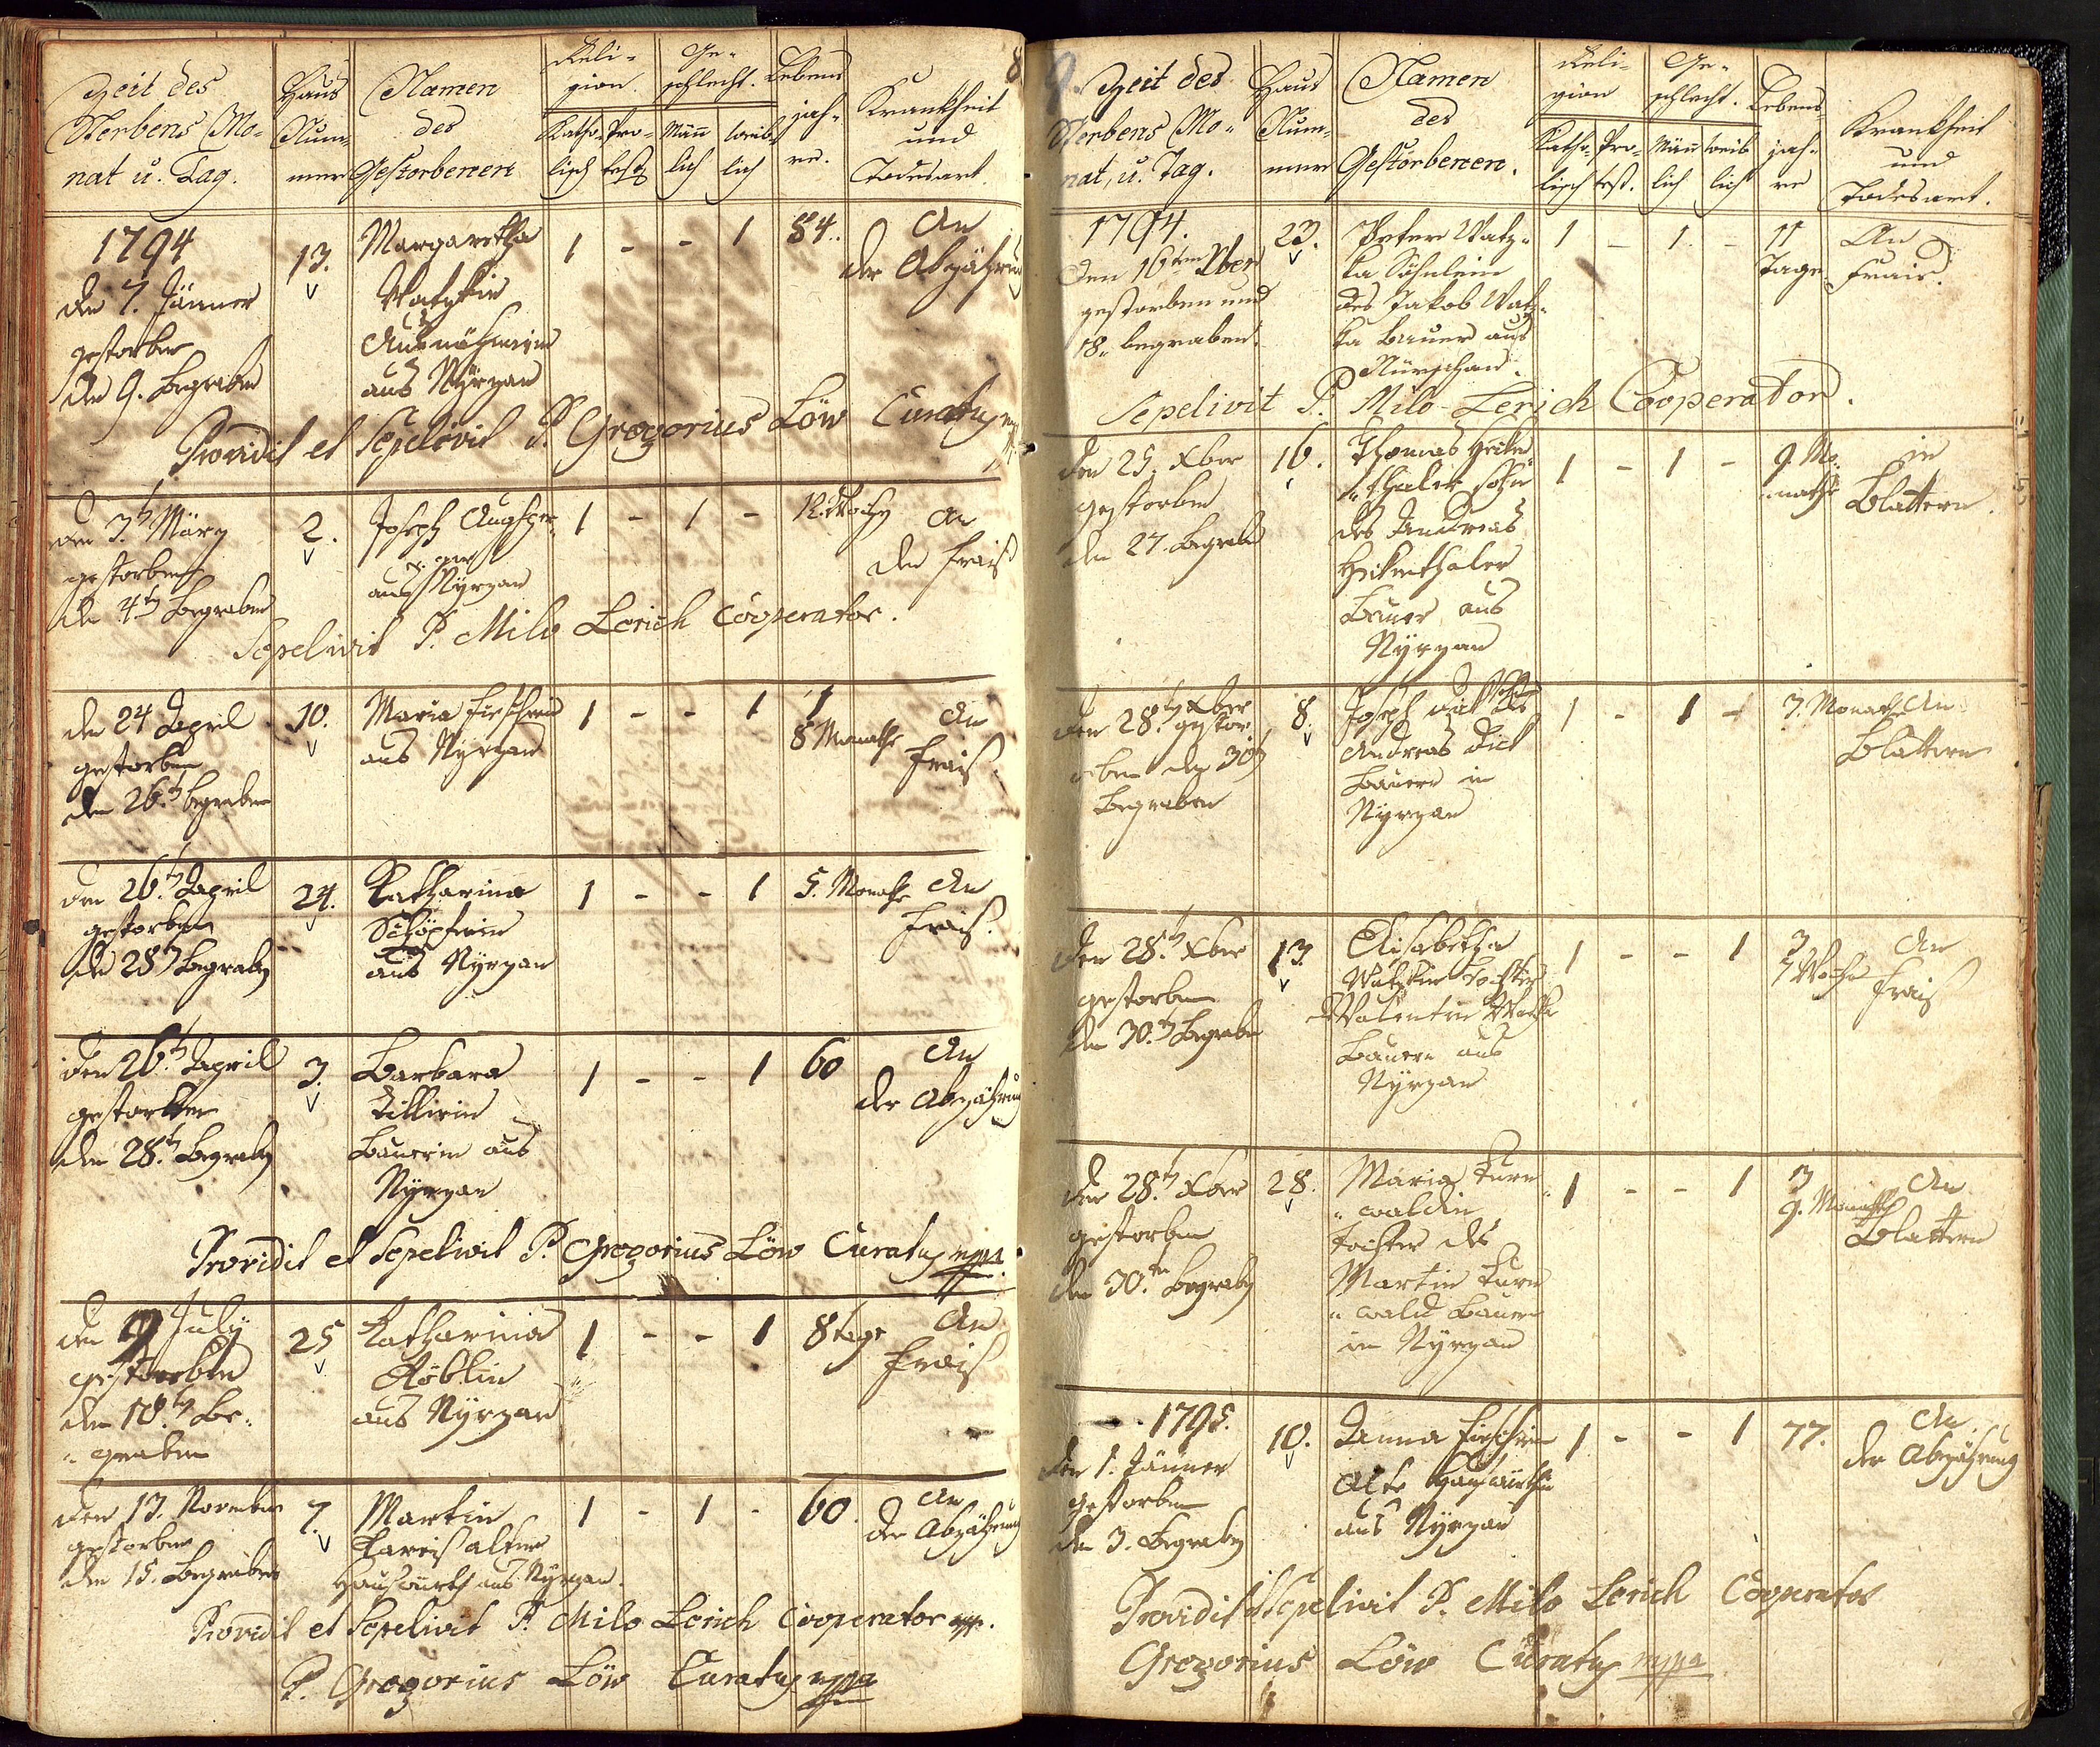 8
Zeit des
Sterbens Mo-
nat u. Tag.
Haus
Num-
mer
Namen
des
Gestorbenen
Reli-
gion.
Katho-
lisch
Pro-
test
Ge-
schlecht.
Män̄
lich
weib
lich
Lebens
jah-
re.
Krankheit
und
Todesart.
1794
den 7. Jänner
gestorben
den 9. Begraben
13.
Margaretha
Watzkin
Ausnähmerin
aus Nyrzan
1 - - 1
84.
An
der Abzährung
Providit et Sepelivit P. Gregorius Löw Curatus mpp
den 3t März
gestorben
den 4t Begraben
2.
Joseph Augsper-
ger
aus Nyrzan
1 - 1 -
12. Wochen
An
der Frais
Sepelivit P. Milo Lerich Cooperator.
den 24 April
gestorben
den 26.t begraben
10.
Maria
aus Nyrzan
1 - - 1
1
8 Monathe
An
Frais.
den 26.t April
gestorben
den 28t Begraben
24.
Katharina
Schöpfrin
aus Nyrzan
1 - - 1
5. Monathe
An
Frais.
den 26.t April
gestorben
den 28.t Begraben
3.
Barbara
Bauerin aus
Nyrzan
1 - - 1
60
An
der Abzährung
Providit et Sepelivit P. Gregorius Löw Curatus mppa.
den 9 July
gestorben
den 10.t Be-
graben
25
Katharina
Röblin
aus Nyrzan
1 - - 1
8 tage
An
Frais
den 13. November
gestorben
den 15. Begraben
7.
Martin
Hauswirth aus Nyrzan.
1 - 1 -
60.
An
der Abzährung
Providit et Sepelivit P. Milo Lerich Cooperator mpp.
P. Gregorius Löw Curatus mppa
9.
Zeit des
Sterbens Mo-
nat, u. Tag.
Haus
Num-
mer
Namen
des
Gestorbenen.
Reli-
gion
Katho-
lisch
Pro-
test.
Ge-
schlecht.
Män̄
lich
weib
lich
Lebens-
jah-
re
Krankheit
und
Todesart.
1794.
den 16ten Xber
gestorben und
18. begraben.
23.
Peter Watz-
ka Söhnlein
des Jakob Watz-
ka Bauer aus
Nürschan.
1 - 1 -
11
Tage
An
Frais.
Sepelivit P. Milo Lerich Cooperator.
den 25. Xber
gestorben
den 27. Begraben
16.
Thomas Heiken-
thaler Sohn
des Andreas
Heikenthaler
Bauer aus
Nyrzan
1 - 1 -
9. Mo-
nathe
in
Blattern.
den 28.t Xber
gestor-
ben den 30t
Begraben
8.
Joseph Dick Sohn des
Andreas Dick
Bauern in
Nyrzan
1 - 1 -
3. Monathe
An
Blattern
den 28.t Xber
gestorben
den 30.t Begraben
13.
Elisabetha
Watzkin Tochter
Valentin Watzka
Bauern aus
Nyrzan
1 - - 1
3
Wochen
An
Frais
den 28.t Xber
gestorben
den 30.t Begraben
28.
Maria Turn-
waldin
Tochter des
Martin Turn-
wald Bauern
in Nyrzan
1 - - 1
3
9. Monathe
An
Blattern
1795.
den 1. Jänner
gestorben
den 3. Begraben
10.
Anna
Alte Hauswirthin
aus Nyrzan
1 - - 1
77.
An
der Abzährung
Providit et Sepelivit P. Milo Lerich Cooperator
Gregorius Löw Curatus mppa